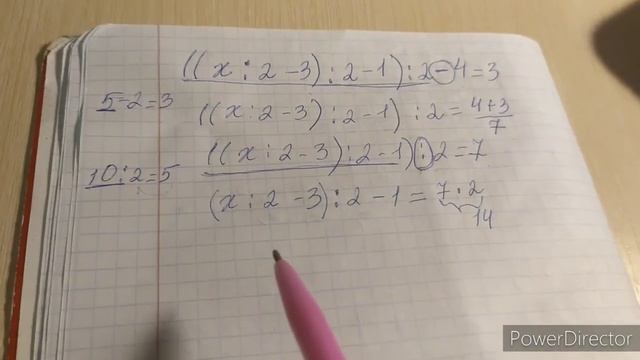 ((x : 2 - 3) : 2 - 1) : 2 - 4 = 3
5 - 2 = 3
((x : 2 - 3) : 2 - 1) : 2 = 4 + 3
7
((x : 2 - 3) : 2 - 1) : 2 = 7
10 : 2 = 5
(x : 2 - 3) : 2 - 1 = 7 . 2
14
PowerDirector